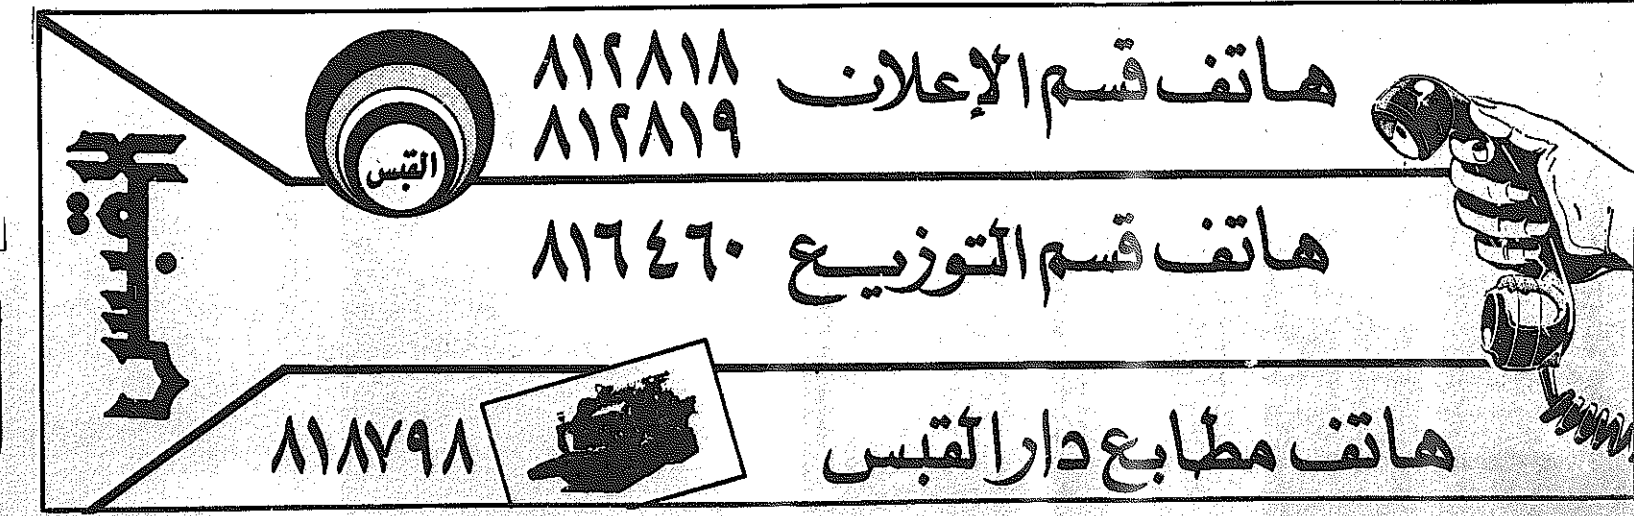 هاتف قسم الإعلان ٨١٢٨١٨
٨١٢٨١٩
القبس
هاتف قسم التوزيع ٨١٦٤٦٠
هاتف مطابع دار القبس ٨١٨٧٩٨
القبس